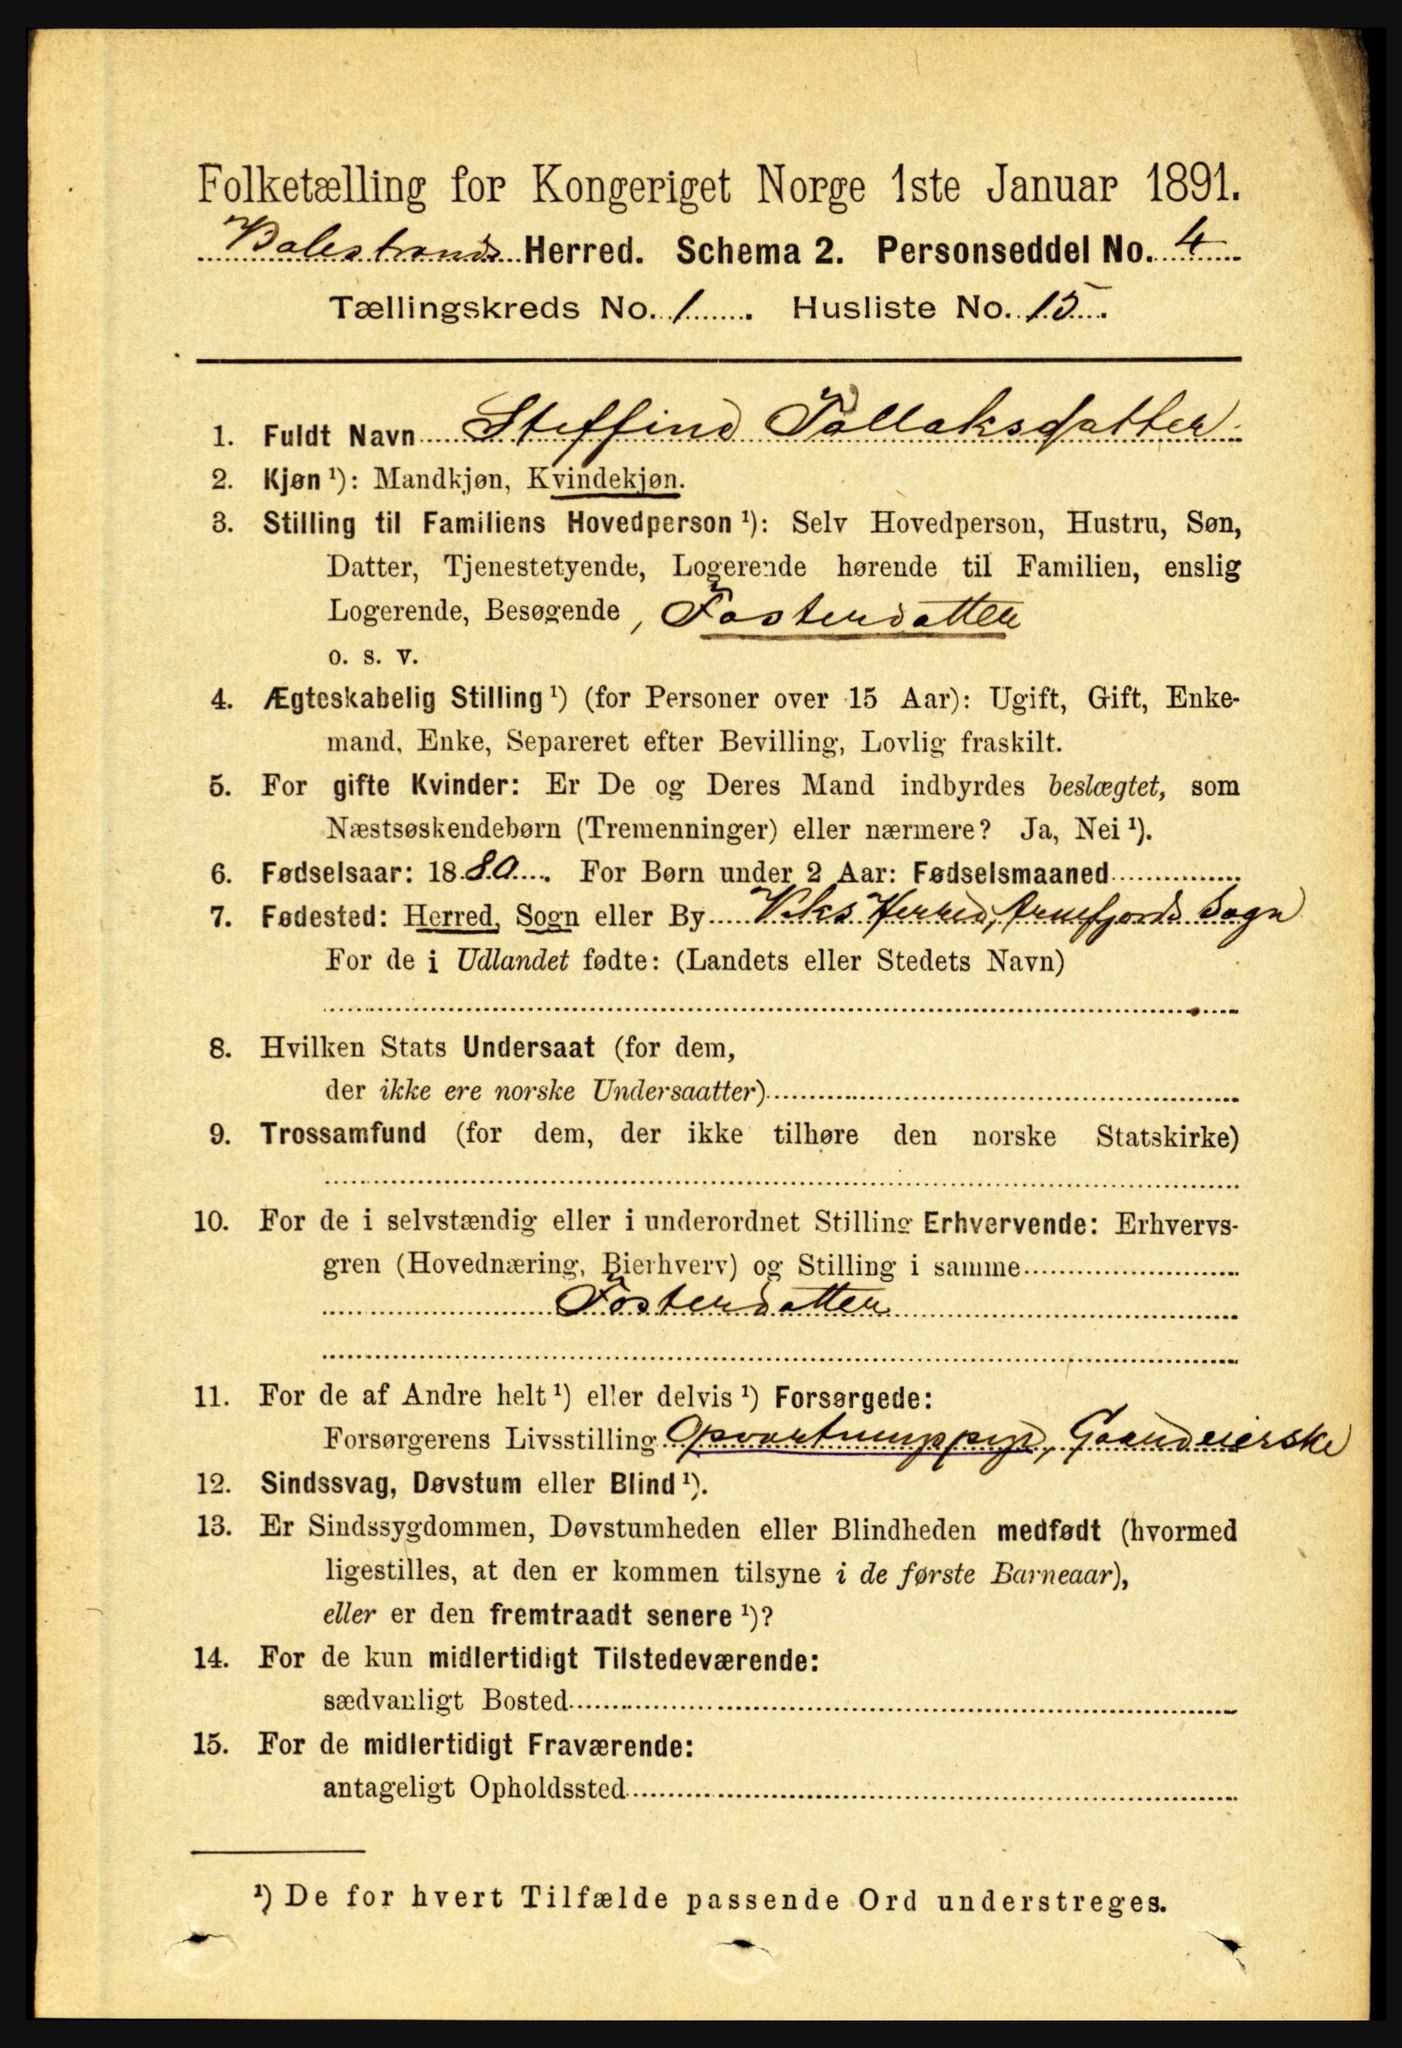 Folketælling for Kongeriget Norge 1ste Januar 1891.
Balestrands Herred. Schema 2. Personseddel No. 4
Tællingskreds No. 1. Husliste No. 15.
1. Fuldt Navn Steffine Tollaksdatter
2. Kjøn ¹): Mandkjøn, Kvindekjøn.
3. Stilling til Familiens Hovedperson ¹): Selv Hovedperson, Hustru, Søn,
Datter, Tjenestetyende, Logerende hørende til Familien, enslig
Logerende, Besøgende, Fosterdatter
o. s. v.
4. Ægteskabelig Stilling ¹) (for Personer over 15 Aar): Ugift, Gift, Enke-
mand, Enke, Separeret efter Bevilling, Lovlig fraskilt.
5. For gifte Kvinder: Er De og Deres Mand indbyrdes beslægtet, som
Næstsøskendebørn (Tremenninger) eller nærmere? Ja, Nei ¹).
6. Fødselsaar: 1880. For Børn under 2 Aar: Fødselsmaaned
7. Fødested: Herred, Sogn eller By Viks Herred, Arnefjords Sogn
For de i Udlandet fødte: (Landets eller Stedets Navn)
8. Hvilken Stats Undersaat (for dem,
der ikke ere norske Undersaatter)
9. Trossamfund (for dem, der ikke tilhøre den norske Statskirke)
10. For de i selvstændig eller i underordnet Stilling Erhvervende: Erhvervs-
gren (Hovednæring, Bierhverv) og Stilling i samme
Fosterdatter
11. For de af Andre helt ¹) eller delvis ¹) Forsørgede:
Forsørgerens Livsstilling Gaardeierske
12. Sindssvag, Døvstum eller Blind ¹).
13. Er Sindssygdommen, Døvstumheden eller Blindheden medfødt (hvormed
ligestilles, at den er kommen tilsyne i de første Barneaar),
eller er den fremtraadt senere ¹)?
14. For de kun midlertidigt Tilstedeværende:
sædvanligt Bosted
15. For de midlertidigt Fraværende:
antageligt Opholdssted
¹) De for hvert Tilfælde passende Ord understreges.